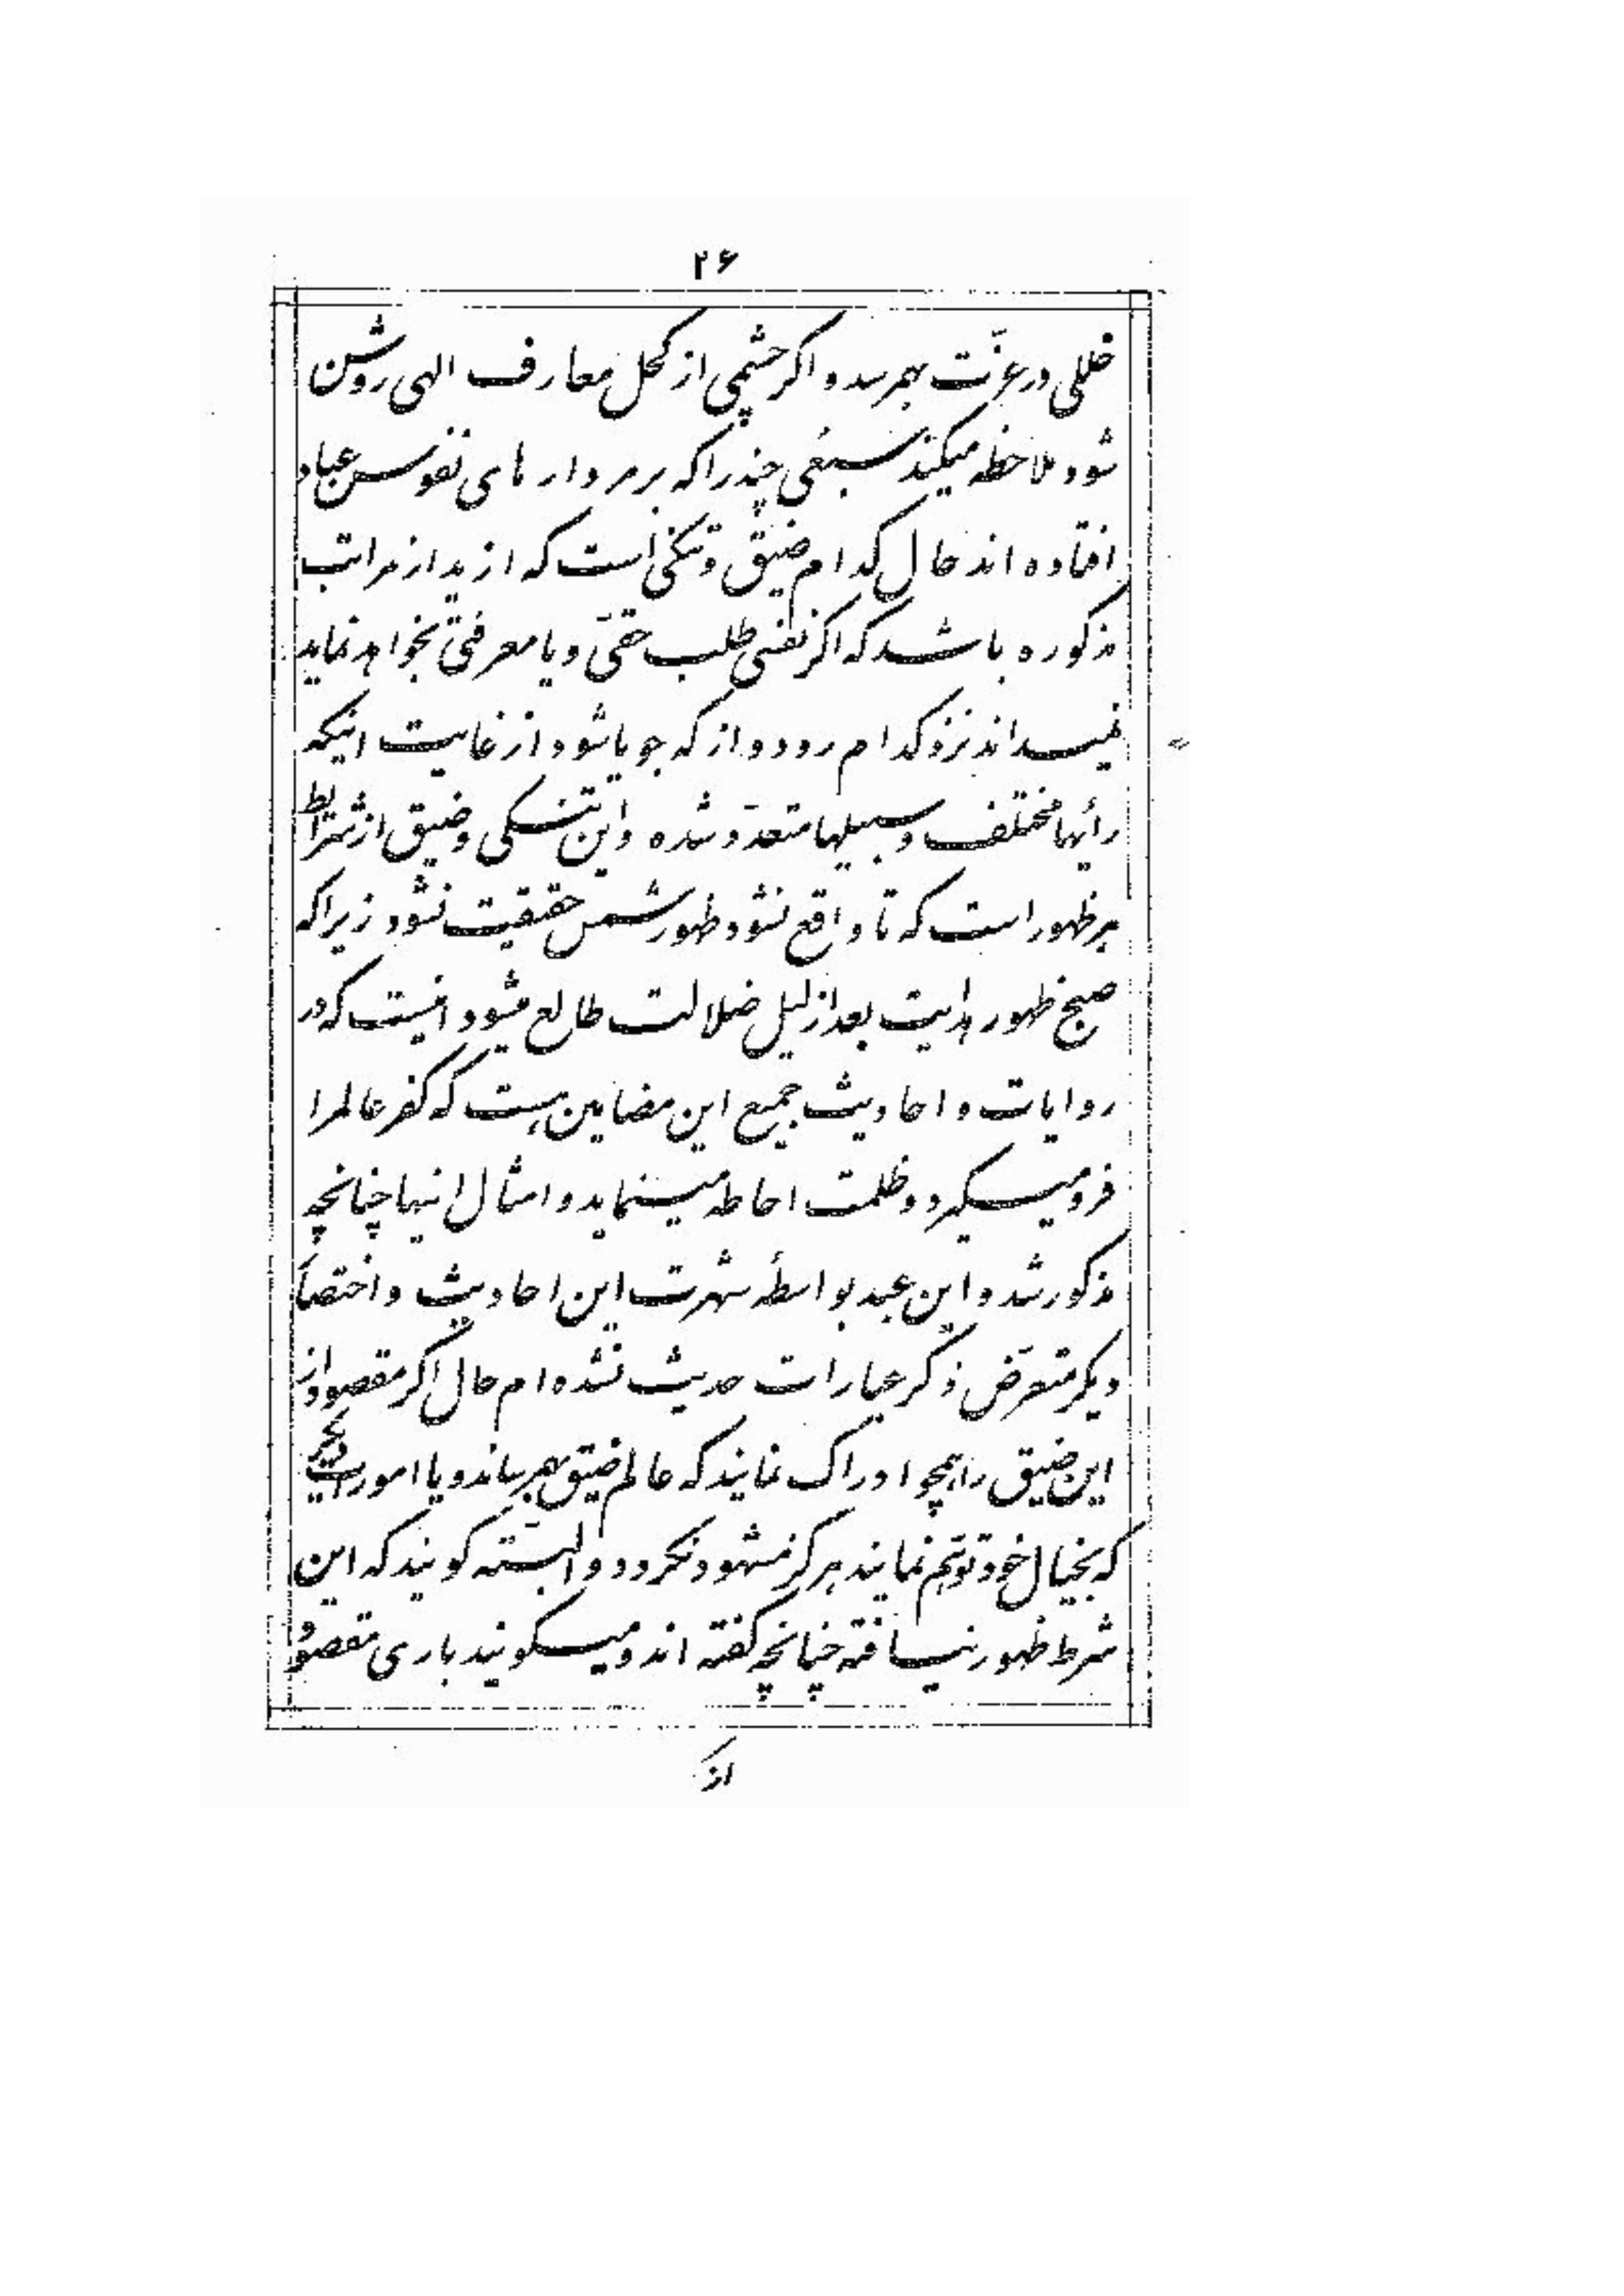 ۲۶
خللی در عزّت بهمرسد و اکر چشمی از کحل معارف الهی روشن
شود ملاحظه میکند سبعی چند را که بر مردارهای نفوس عباد
افتاده اند حال کدام ضیق و تنکی است که ازید از مراتب
مذکوره باشد که اکر نفسی طلب حقّی و یا معرفتی بخواهد نماید
نمیداند نزد کدام رود و از که جویا شود از غایت اینکه
رأیها مختلف و سبیلها متعدّد شده و این تنکی و ضیق از شرائط
هر ظهور است که تا واقع نشود ظهور شمس حقیقت نشود زیرا که
صبح ظهور هدایت بعد از لیل ضلالت طالع میشود اینست که در
روایات و احادیث جمیع این مضامین هست که کفر عالم را
فرو میکیرد و ظلمت احاطه مینماید و امثال اینها چنانچه
مذکور شد و این عبد بواسطهٔ شهرت این احادیث و اختصاً
دیکر متعرّض ذکر عبارات حدیث نشده ام حال اکر مقصود از
این ضیق را همچو ادراک نمایند که عالم ضیق بهمرساند و یا امورات دیکر
که بخیال خود توهّم نمایند هرکز مشهود نکردد و البتّه کویند که این
شرط ظهور نیافته چنانچه کفته اند و میکویند باری مقصود
از